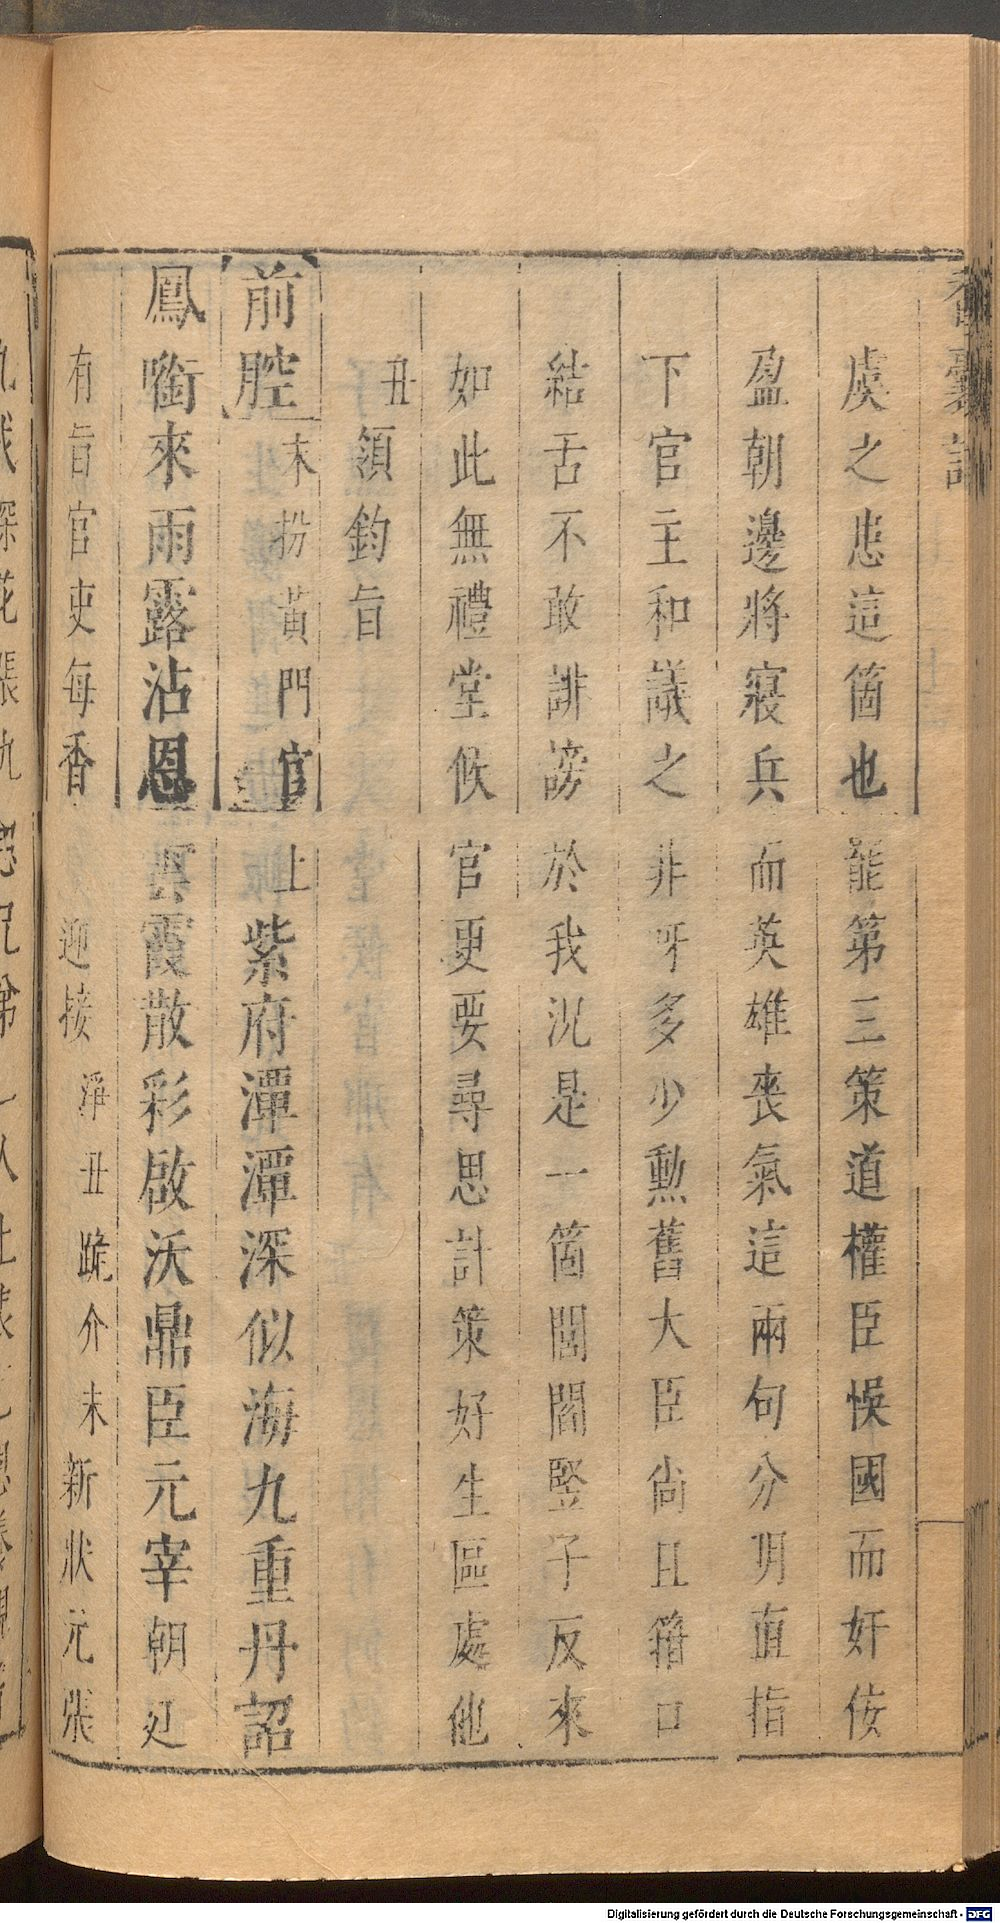 香囊記
虞之患這箇也罷第三策道權臣悞國而奸佞
盈朝邊將寢兵而英雄喪氣這兩句分明直指
下官主和議之非呀多少勳舊大臣尚且箝口
結舌不敢誹謗於我況是一箇閭閻豎子反來
如此無禮堂候官更要尋思計策好生區處他
丑領鈞旨
前腔 末扮黃門官上 紫府潭潭深似海九重丹詔
鳳啣來雨露沾恩 雲霞散彩啟沃鼎臣元宰朝廷
有旨官吏每香 迎接 淨丑跪介末 新狀元張
Digitalisierung gefördert durch die Deutsche Forschungsgemeinschaft - DFG